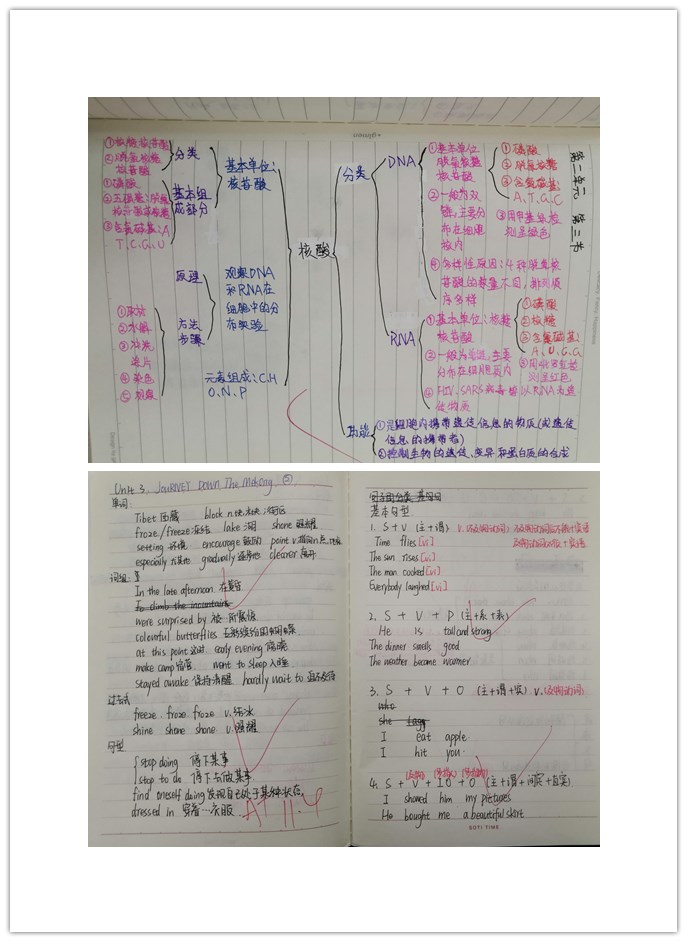 第二章 第三节
核酸
分类
DNA
①基本单位:
脱氧核糖
核苷酸
①磷酸
②脱氧核糖
③含氮碱基:
A、T、G、C
②一般为双
链,主要分
布在细胞
核内
③用甲基绿检
测呈绿色
④多样性原因:4种脱氧核
苷酸的数量不同,排列顺
序多样
RNA
①基本单位:核糖
核苷酸
①磷酸
②核糖
③含氮碱基:
A、U、G、C
②一般为单链,主要
分布在细胞质内
③用吡罗红检
测呈红色
④HIV、SARS病毒等以RNA为遗
传物质
功能
①是细胞内携带遗传信息的物质(或遗传
信息的携带者)
②控制生物的遗传、变异和蛋白质的合成
基本单位:
核苷酸
分类
①核糖核苷酸
②脱氧核糖
核苷酸
基本组
成部分
①磷酸
②五碳糖:脱氧
核糖或核糖
③含氮碱基:A
T、C、G、U
观察DNA
和RNA在
细胞中的分
布实验
原理
方法
步骤
①取材
②水解
③冲洗
涂片
④染色
⑤观察
元素组成:C、H
O、N、P
Unit 3 Journey Down The Mekong ⑤
单词:
Tibet 西藏 block n.
froze/freeze 冻结 lake 湖 shone 照耀
setting 环境 encourage 鼓励 point v.
especially 尤其地 gradually 逐渐地 clearer
词组:
In the late afternoon 在黄昏
To climb the mountains
were surprised by 被…所震惊
colourful butterflies 五彩缤纷的蝴蝶
at this point 这时 early evening 傍晚
make camp 宿营 went to sleep 入睡
stayed awake 保持清醒 hardly wait to 迫不及待
过去式
freeze froze froze v. 结冰
shine shone shone v. 照耀
句型
stop doing 停下某事
stop to do 停下去做某事
find oneself doing 发现自己处于某种状态
dressed in 穿着…衣服
A+ 11.4
基本句型
1. S + V (主+谓)
Time flies [vi]
The sun rises [vi]
The man cooked [vi]
Everybody laughed [vi]
2. S + V + P (主+系+表)
He is tall and strong
The dinner smells good
The weather became warmer
3. S + V + O (主+谓+宾) v.(及物动词)
who
she
I eat apple
I hit you.
4. S + V + IO + O (主+谓+间宾+直宾)
I showed him my pictures
He bought me a beautiful skirt
SOTI TIME